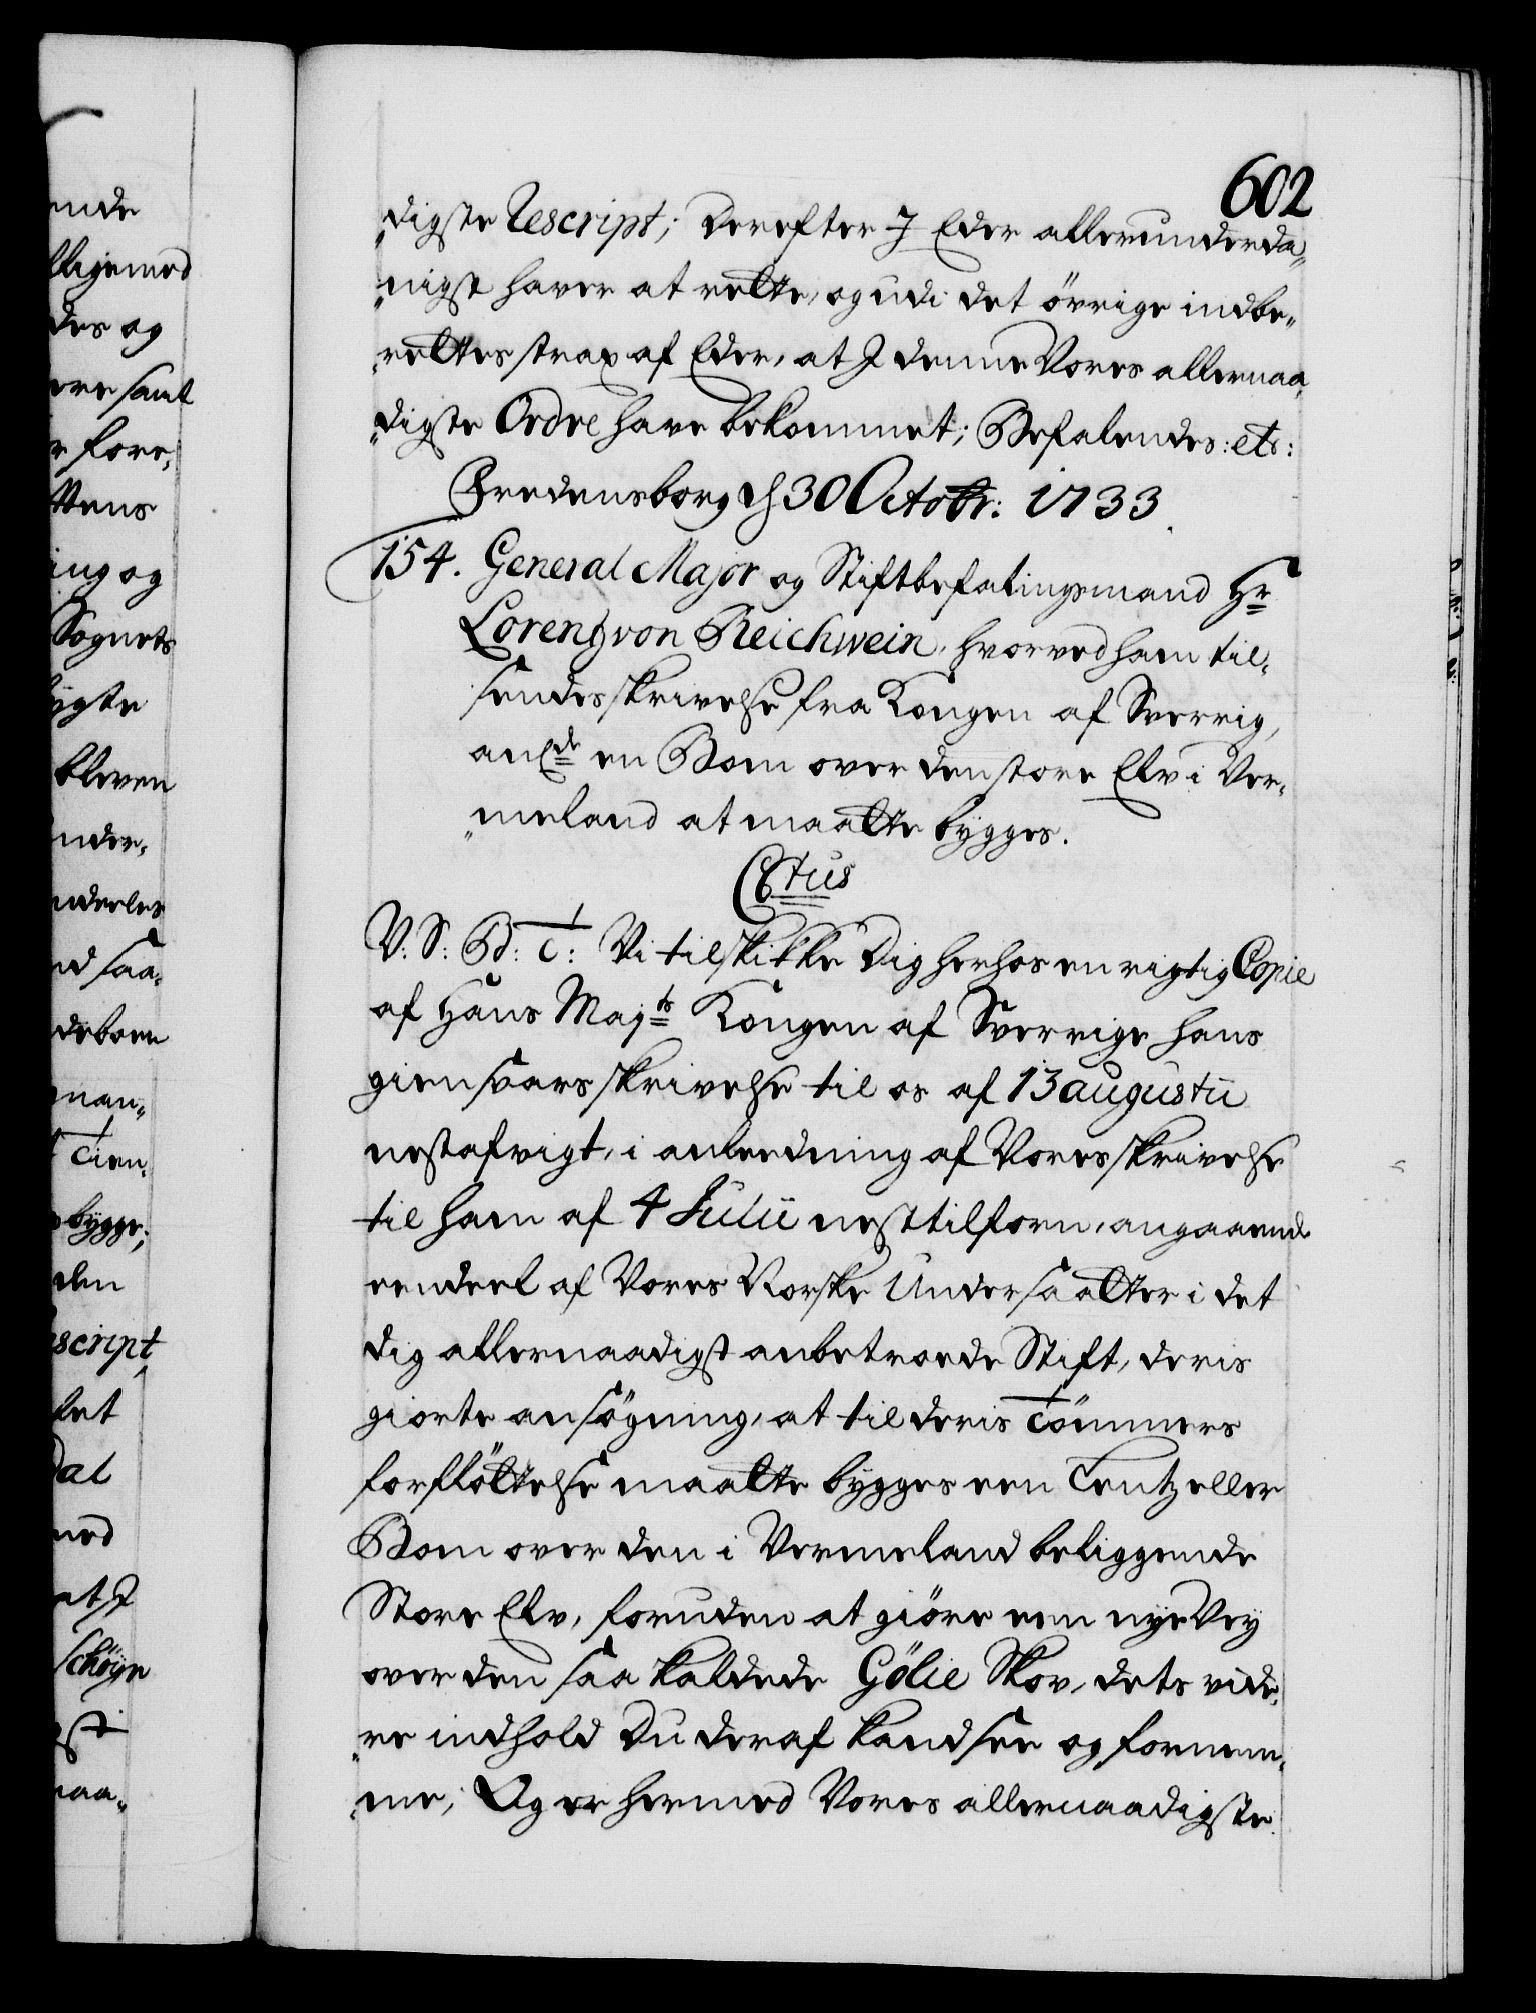 602
digste Rescript; derefter I Eder allerunderda„
„nigst haver at rette, og udi det övrige indbe„
„rettes strax af Eder, at I denne Vores allernaa„
„digste Ordre have bekommet; Befalendes: etc:
Fredensborg d 30 Octobr: 1733.
154. General Major og Stiftbefalingsmand Hr
Lorentz von Reichwein, hvorved ham til„
sendes skrivelse fra Kongen af Sverrig,
anlde en Bom over den store Elv i Ver„
„meland at maatte bygges.
C6tus
V: S: Bd: T: Vi tilskikke Dig herhos en rigtig Copie
af Hans Majts Kongen af Sverrige hans
giensvars skrivelse til os af 13 augustii
nestafvigt, i anledning af Vores skrivelse
til ham af 4 Julii nesttilforn, angaaende
eendeel af Vores Norske Undersaatter i det
dig allernaadigst anbetroede Stift, deris
giorte ansögning, at til deris Tömmers
forflöttelse maatte bygges een Lentz eller
Bom over den i Vermeland beliggende
Store Elv, foruden at giöre een nye Vey
over den saa kaldede Gölie Skov, dets vide„
„re indhold Du deraf kand see og fornem„
„me; Og er hermed Vores allernaadigste
ende
lligemed
des og
ere samt
r fore„
ttens
ing og
Sognets
ygte
bleven
nder„
nderles
nd saa„
deboen
man„
Tien„
bygge;
den
escript
let
dal
med
at I
schöye
gst
naa„